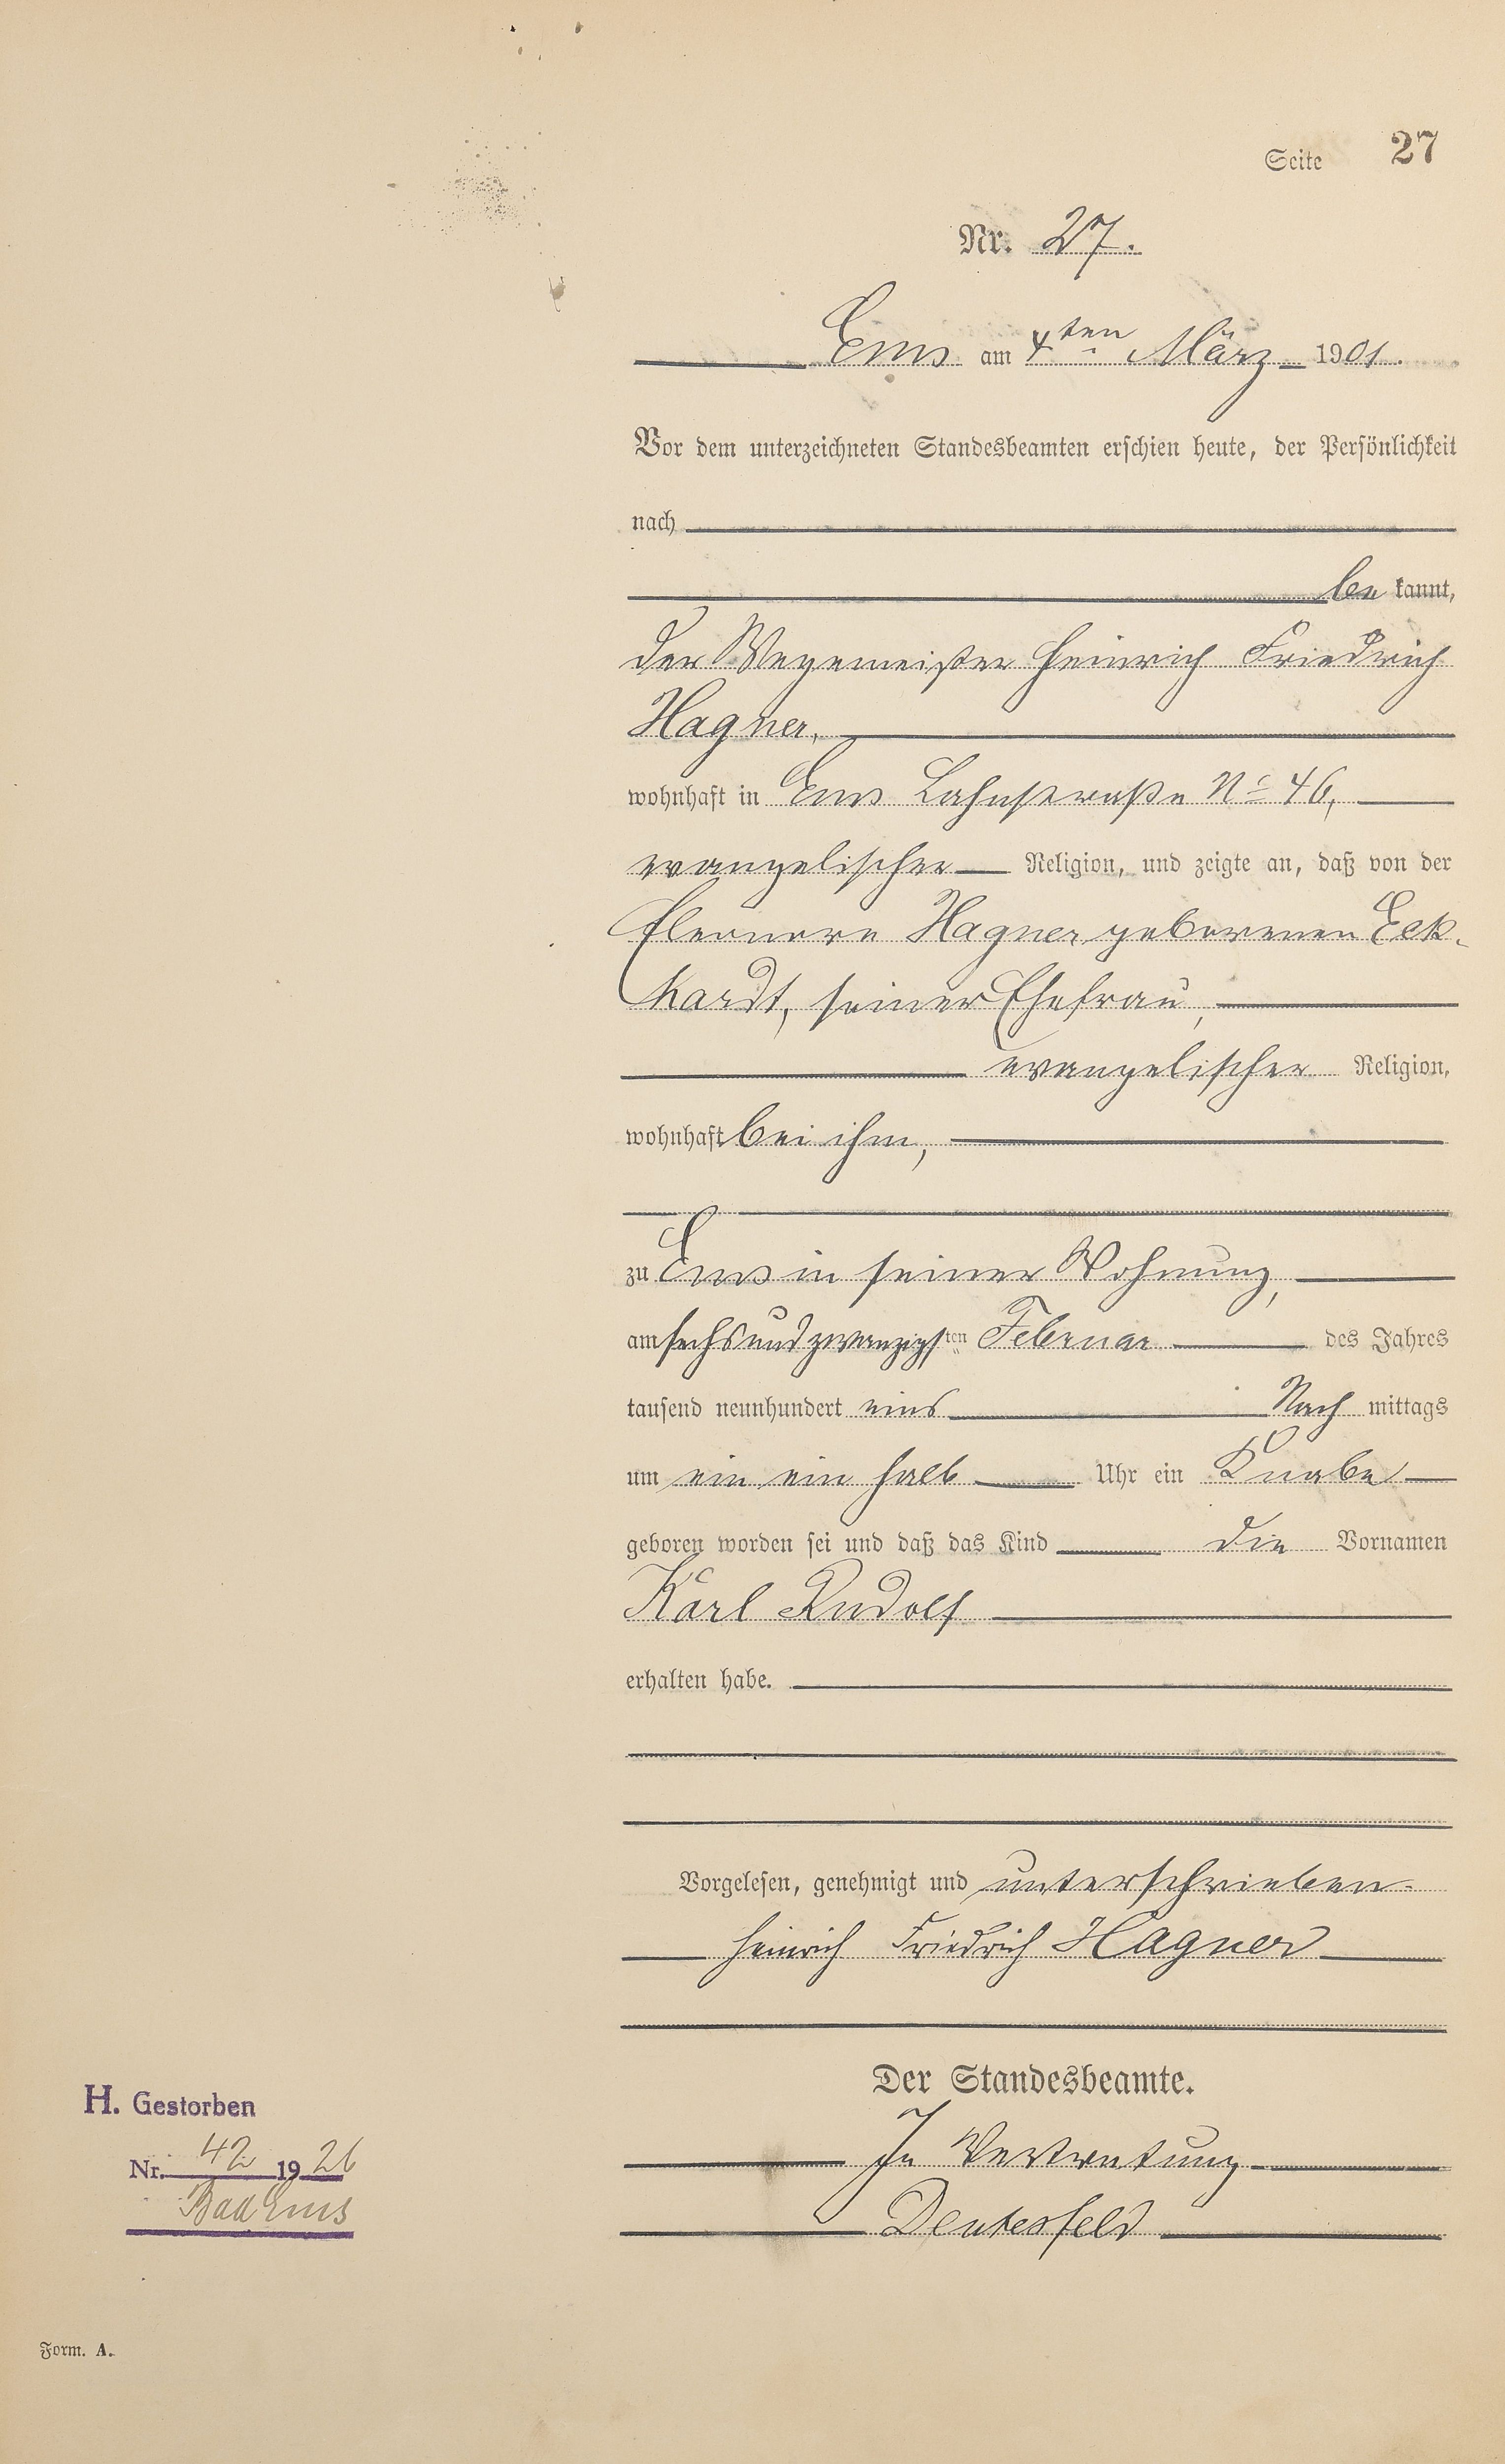 Seite 27
Nr. 27.
Ems am 4ten März 1901.
Vor dem unterzeichneten Standesbeamten erschien heute, der Persönlichkeit
nach
be kannt,
der Wegemeister Heinrich Friedrich
Hagner,
wohnhaft in Ems Lahnstraße No 46,
evangelischer Religion, und zeigte an, daß von der
Eleonore Hagner geborenen Eck-
hardt, seiner Ehefrau,
evangelischer Religion,
wohnhaft bei ihm,
zu Ems in seiner Wohnung,
am sechsundzwanzigsten Februar des Jahres
tausend neunhundert eins Nach mittags
um ein ein halb Uhr ein Knabe
geboren worden sei und daß das Kind die Vornamen
Karl Rudolf
erhalten habe.
Vorgelesen, genehmigt und unterschrieben.
Heinrich Friedrich Hagner
Der Standesbeamte.
In Vertretung
Deutesfeld
H. Gestorben
Nr. 42 1926
Bad Ems
Form. A.